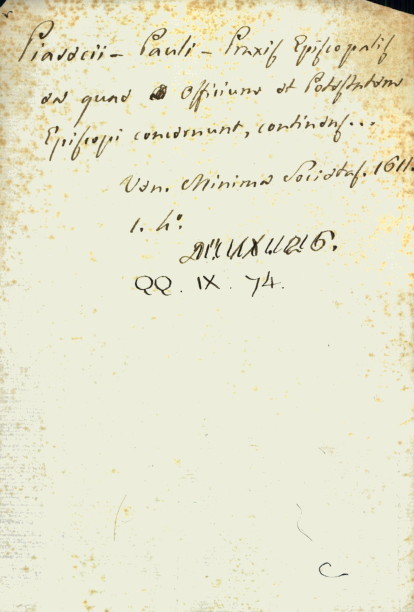 Piasecii - Pauli - Praxis Episcopalis
ea quae Officium et Potestatem
Episcopi concernunt, continens...
Ven. Minima Societas. 1611.
1. 4º.
QQ. IX. 74.